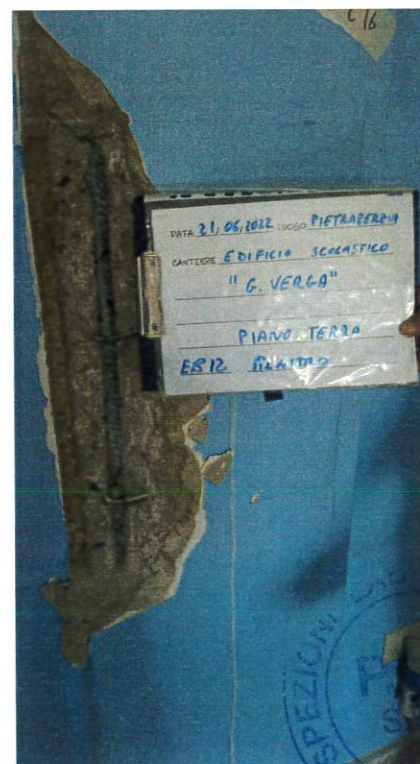 C16
DATA 21,06,2022 LUOGO PIETRAPERZIA
CANTIERE EDIFICIO SCOLASTICO
"G. VERGA"
PIANO TERRA
PILASTRO
SPEZIONI